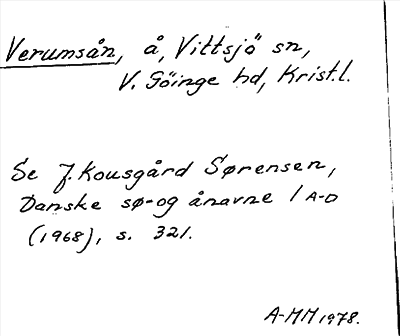 Verumsån, å, Vittsjö sn,
V. Göinge hd, Krist.l.
Se J. Kousgård Sørensen,
Danske sø- og ånavne 1 A-D
(1968), s. 321.
A-MM 1978.